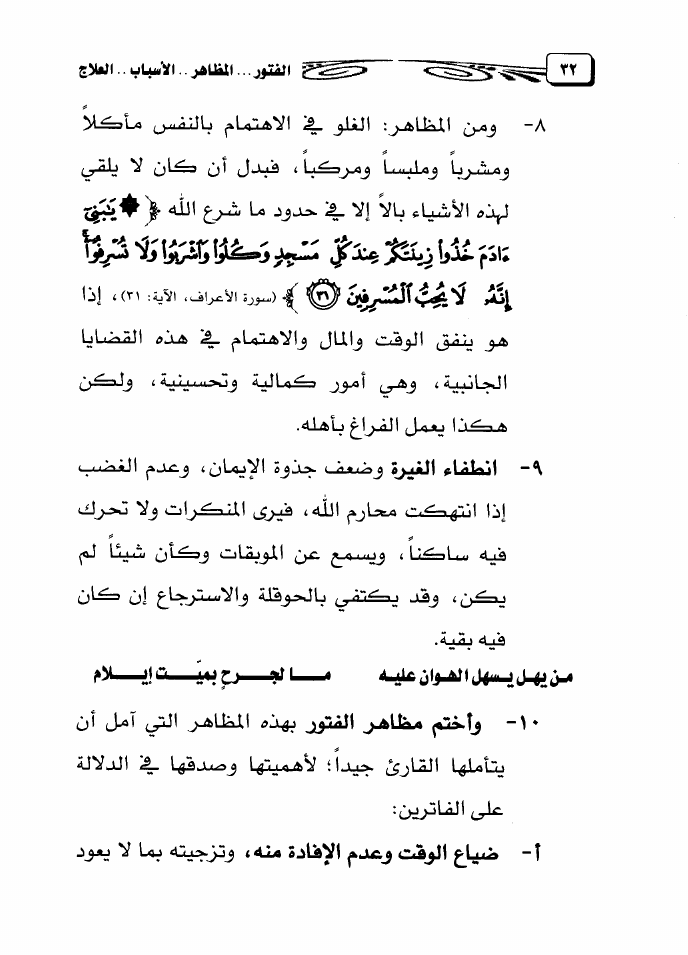 ٣٢
الفتور... المظاهر.. الأسباب.. العلاج
٨- ومن المظاهر: الغلو في الاهتمام بالنفس مأكلاً
ومشرباً وملبساً ومركباً، فبدل أن كان لا يلقي
لهذه الأشياء بالاً إلا في حدود ما شرع الله ﴿ ۞ يَٰبَنِىٓ
ءَادَمَ خُذُوا۟ زِينَتَكُمْ عِندَ كُلِّ مَسْجِدٍ وَكُلُوا۟ وَٱشْرَبُوا۟ وَلَا تُسْرِفُوٓا۟ۚ
إِنَّهُۥ لَا يُحِبُّ ٱلْمُسْرِفِينَ ٣١ ﴾ (سورة الأعراف، الآية: ٣١)، إذا
هو ينفق الوقت والمال والاهتمام في هذه القضايا
الجانبية، وهي أمور كمالية وتحسينية، ولكن
هكذا يعمل الفراغ بأهله.
٩- انطفاء الغيرة وضعف جذوة الإيمان، وعدم الغضب
إذا انتهكت محارم الله، فيرى المنكرات ولا تحرك
فيه ساكناً، ويسمع عن الموبقات وكأن شيئاً لم
يكن، وقد يكتفي بالحوقلة والاسترجاع إن كان
فيه بقية.
من يهل يسهل الهوان عليه ما لجرحٍ بميّت إيلام
١٠- وأختم مظاهر الفتور بهذه المظاهر التي آمل أن
يتأملها القارئ جيداً؛ لأهميتها وصدقها في الدلالة
على الفاترين:
أ- ضياع الوقت وعدم الإفادة منه، وتزجيته بما لا يعود